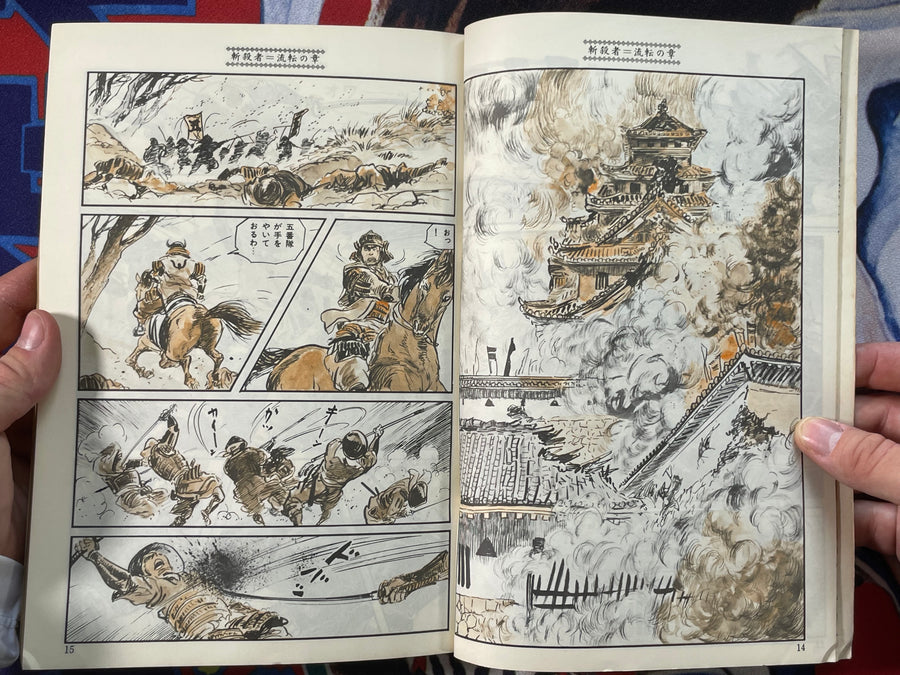 斬殺者=流転の章
14
斬殺者=流転の章
おっ
!
五番隊
が手を
やいて
おるわ…
キーン
カッ
15